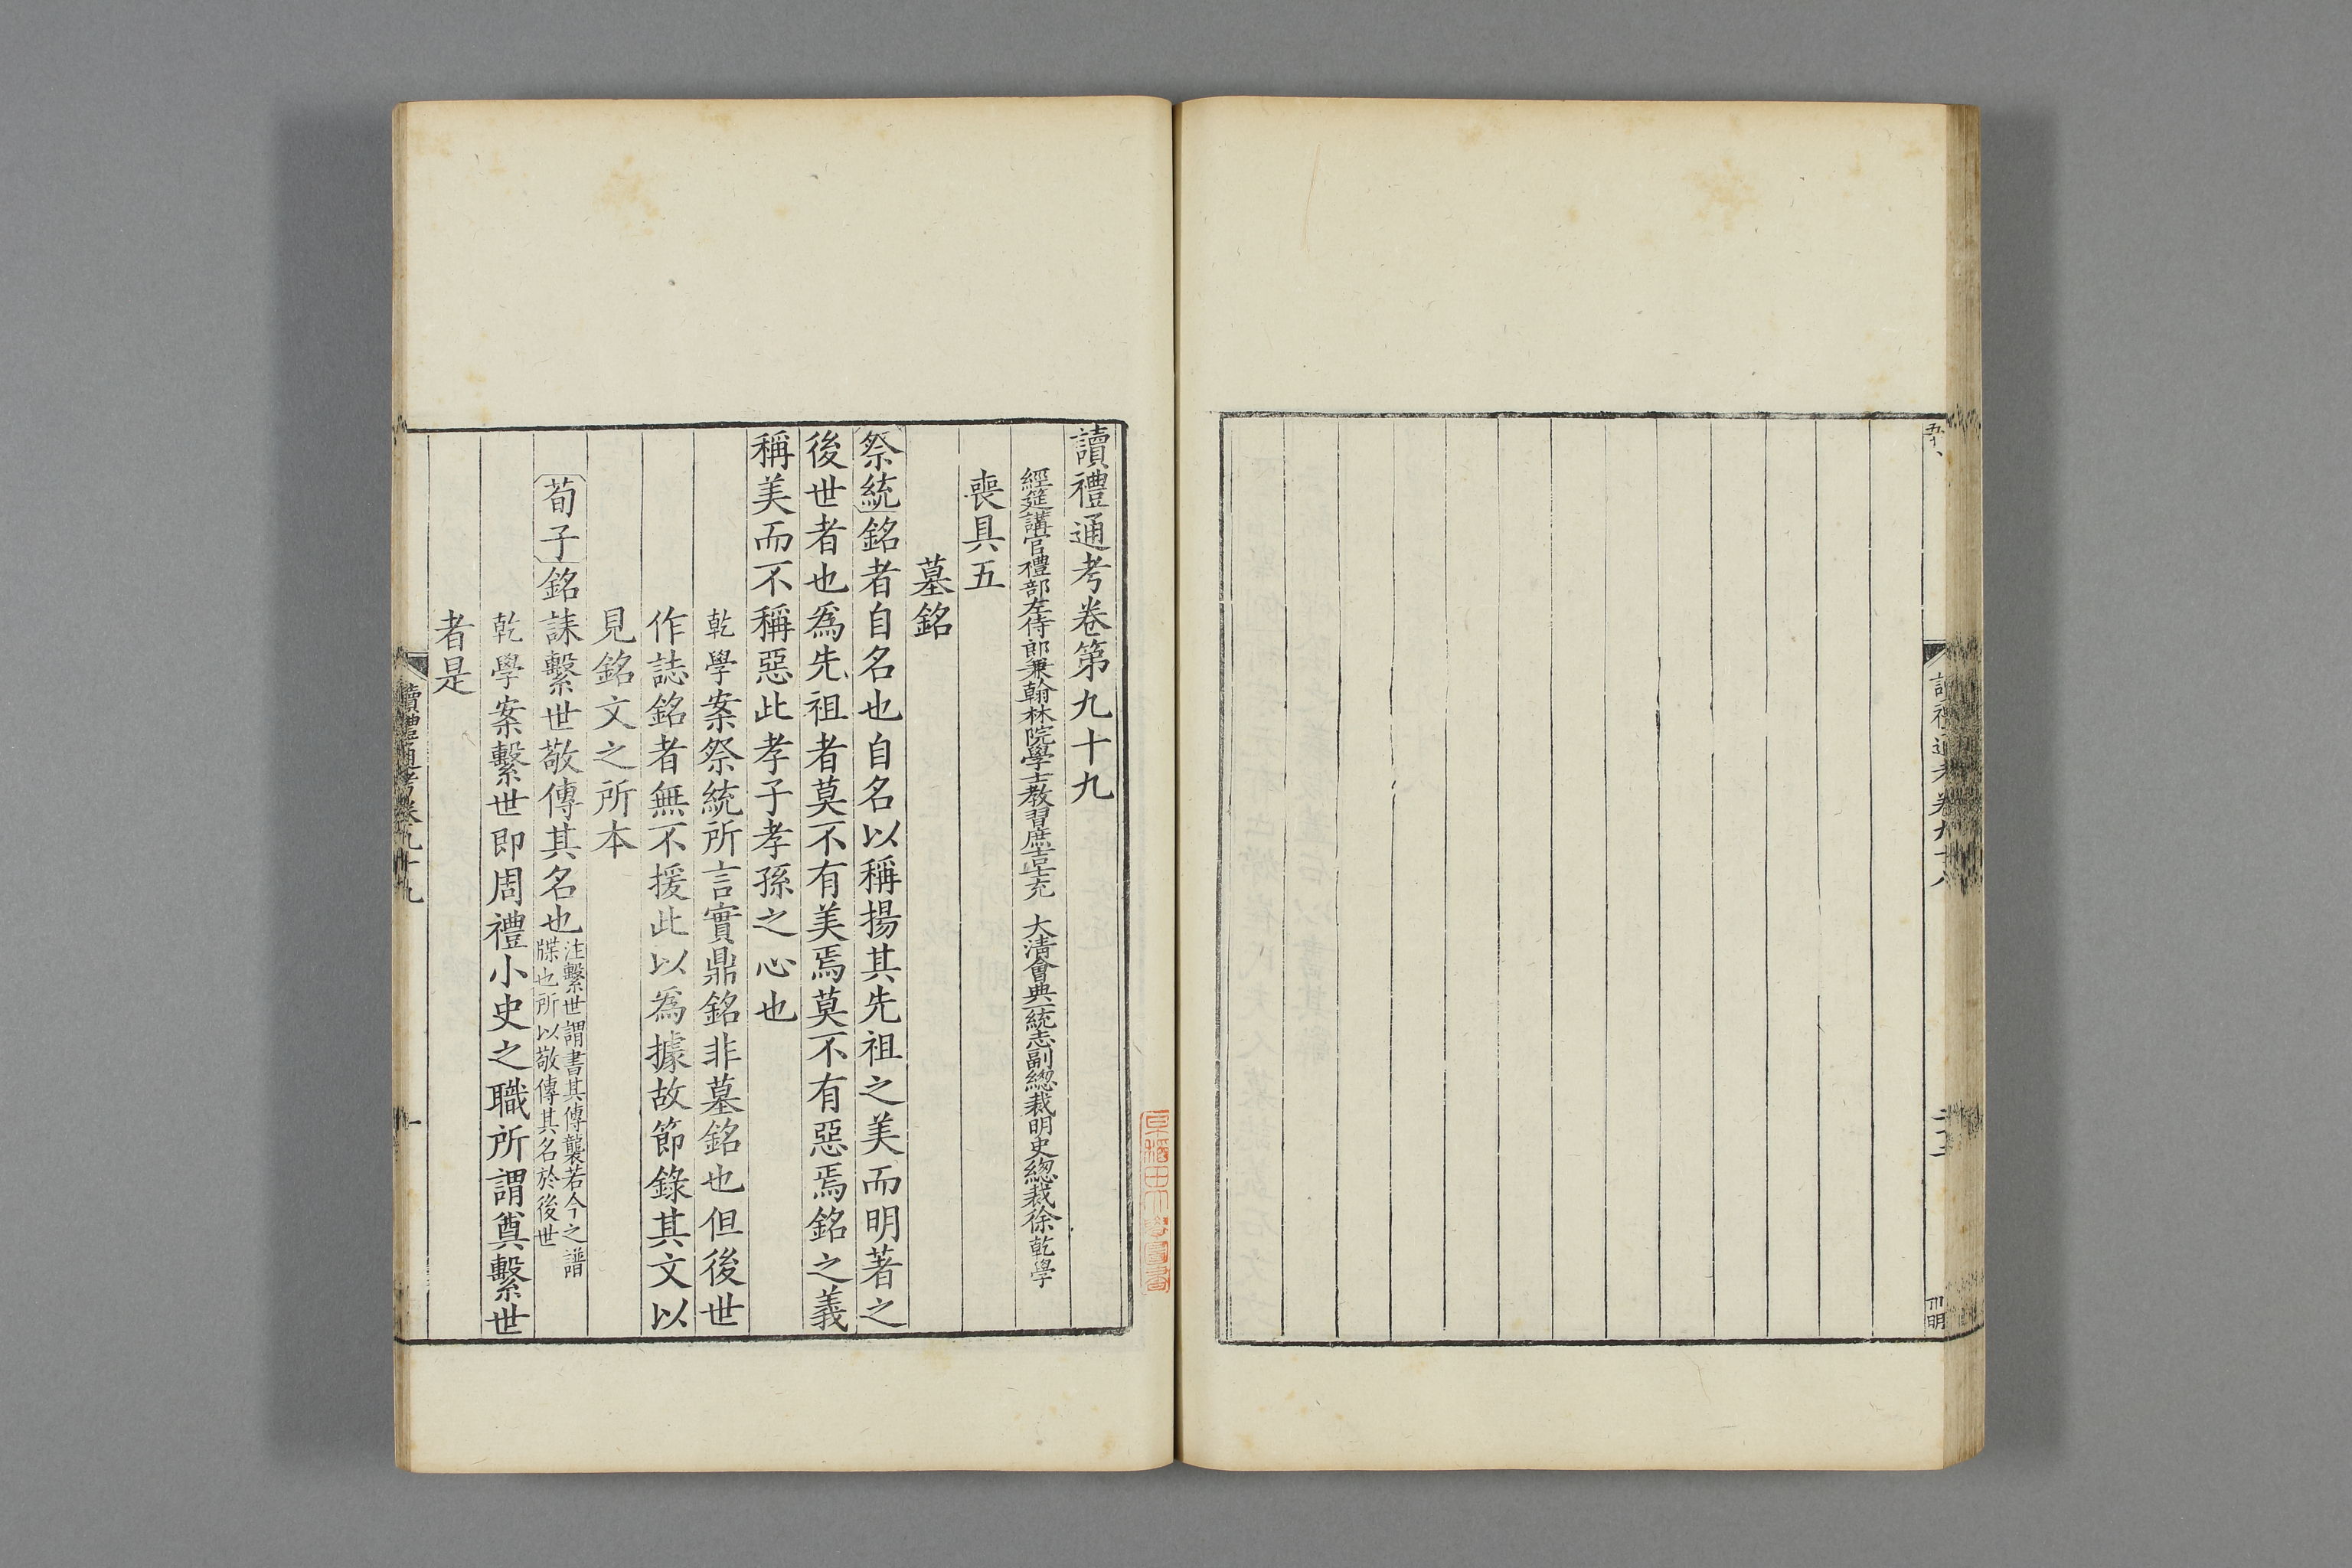 讀禮通考卷第九十九
經筵講官禮部左侍郎兼翰林院學士教習庶吉士充 大清會典一統志副總裁明史總裁徐乾學
喪具五
墓銘
祭統銘者自名也自名以稱揚其先祖之美而明著之
後世者也為先祖者莫不有美焉莫不有惡焉銘之義
稱美而不稱惡此孝子孝孫之心也
乾學案祭統所言實鼎銘非墓銘也但後世
作誌銘者無不援此以為據故節錄其文以
見銘文之所本
荀子銘誄繫世敬傳其名也注繫世謂書其傳襲若今之譜
牒也所以敬傳其名於後世
乾學案繫世即周禮小史之職所謂奠繫世
者是
讀禮通考卷九十九
一
讀禮通考卷九十八
早稲田大學圖書